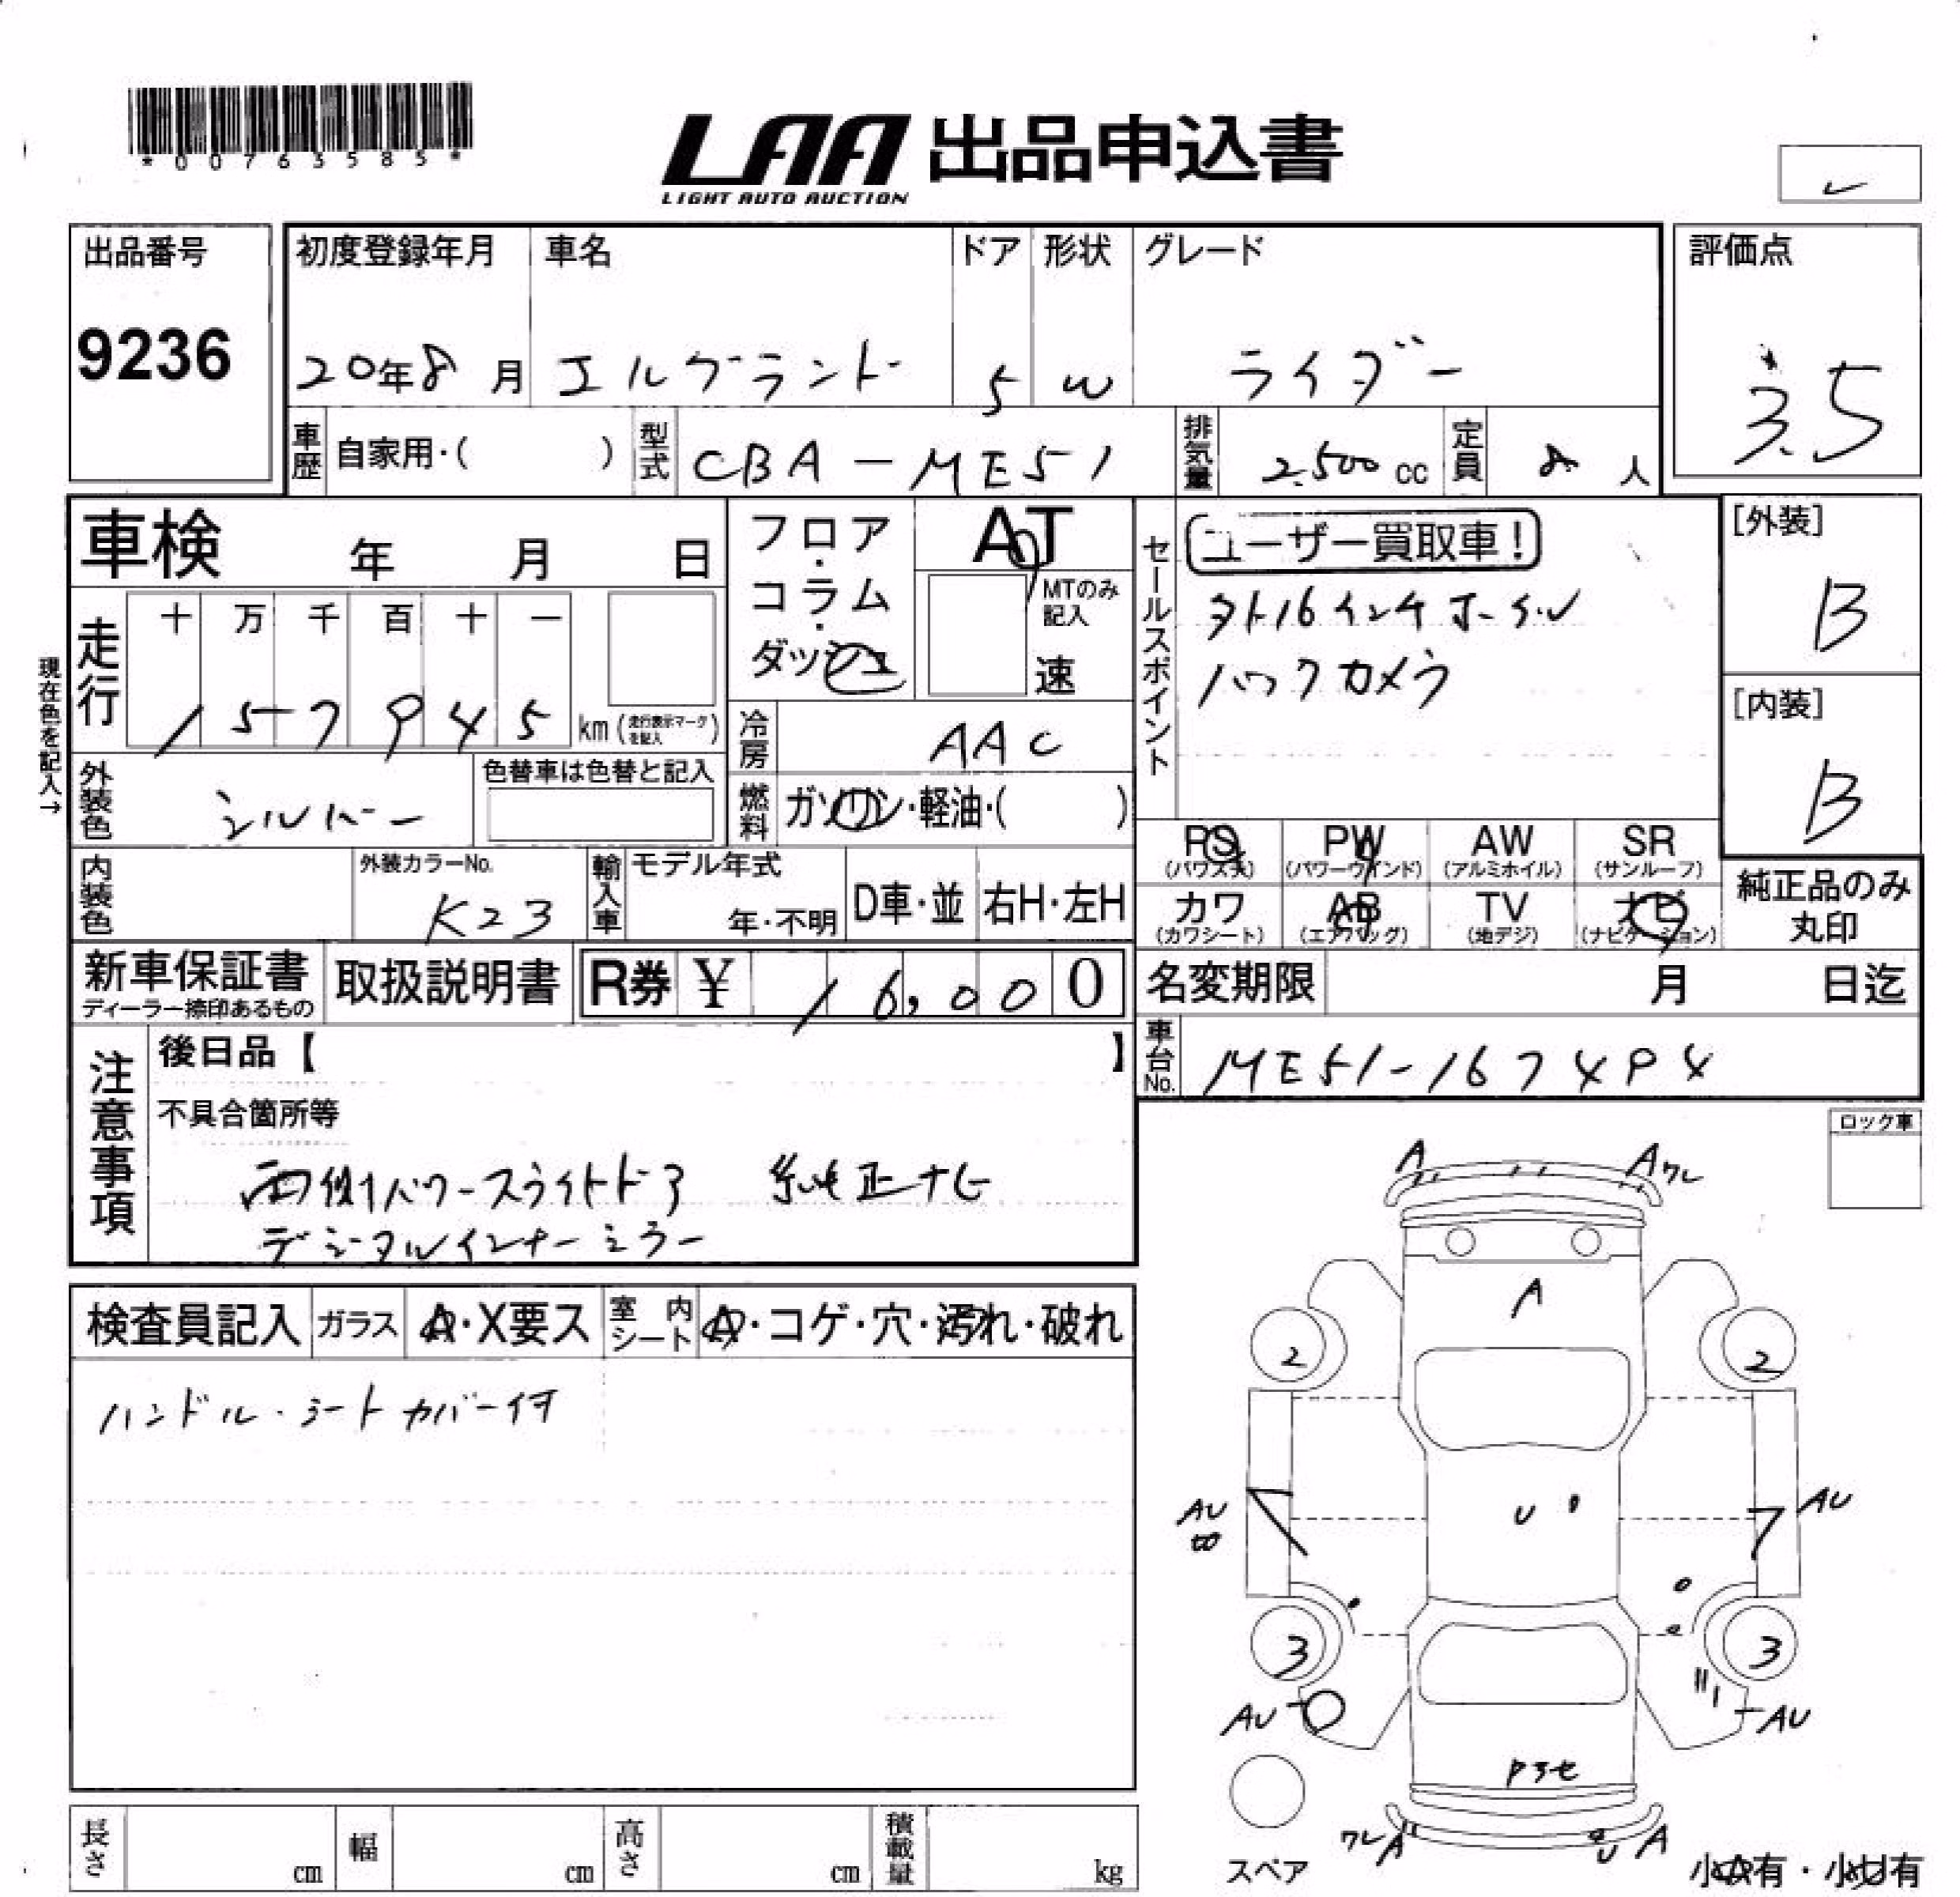 *00763585*
LAA 出品申込書
LIGHT AUTO AUCTION
出品番号
9236
初度登録年月 車名 ドア 形状 グレード
20年8月 エルグランド 5 W ライダー
評価点
3.5
車歴 自家用・( ) 型式 CBA-ME51 排気量 2500 cc 定員 8 人
車検 年 月 日
フロア・コラム・ダッシュ
AT
MTのみ記入
速
セールスポイント
ユーザー買取車!
外16インチホイル
バックカメラ
[外装]
B
[内装]
B
現在色を記入→
走行 十 万 千 百 十 一
157945 km (走行表示マークを記入)
冷房 AAC
燃料 ガソリン・軽油・( )
外装色 シルバー
色替車は色替と記入
内装色
外装カラーNo.
K23
輸入車 モデル年式
年・不明 D車・並 右H・左H
RS (パワステ) PW (パワーウインド) AW (アルミホイル) SR (サンルーフ)
カワ (カワシート) AB (エアバッグ) TV (地デジ) ナビ (ナビゲーション)
純正品のみ丸印
新車保証書
ディーラー捺印あるもの
取扱説明書
R券 ¥ 16,000 0
名変期限 月 日迄
車台No. ME51-167494
注意事項
後日品【 】
不具合箇所等
両側パワースライドドア 純正ナビ
デジタルインナーミラー
ロック車
検査員記入 ガラス A・X要ス 室内シート A・コゲ・穴・汚れ・破れ
ハンドル・シートカバー付
A Aワレ
A
2 2
AU AU
U
3 3
AU AU
ワレA U A
スペア
小A有・小U有
長さ cm 幅 cm 高さ cm 積載量 kg